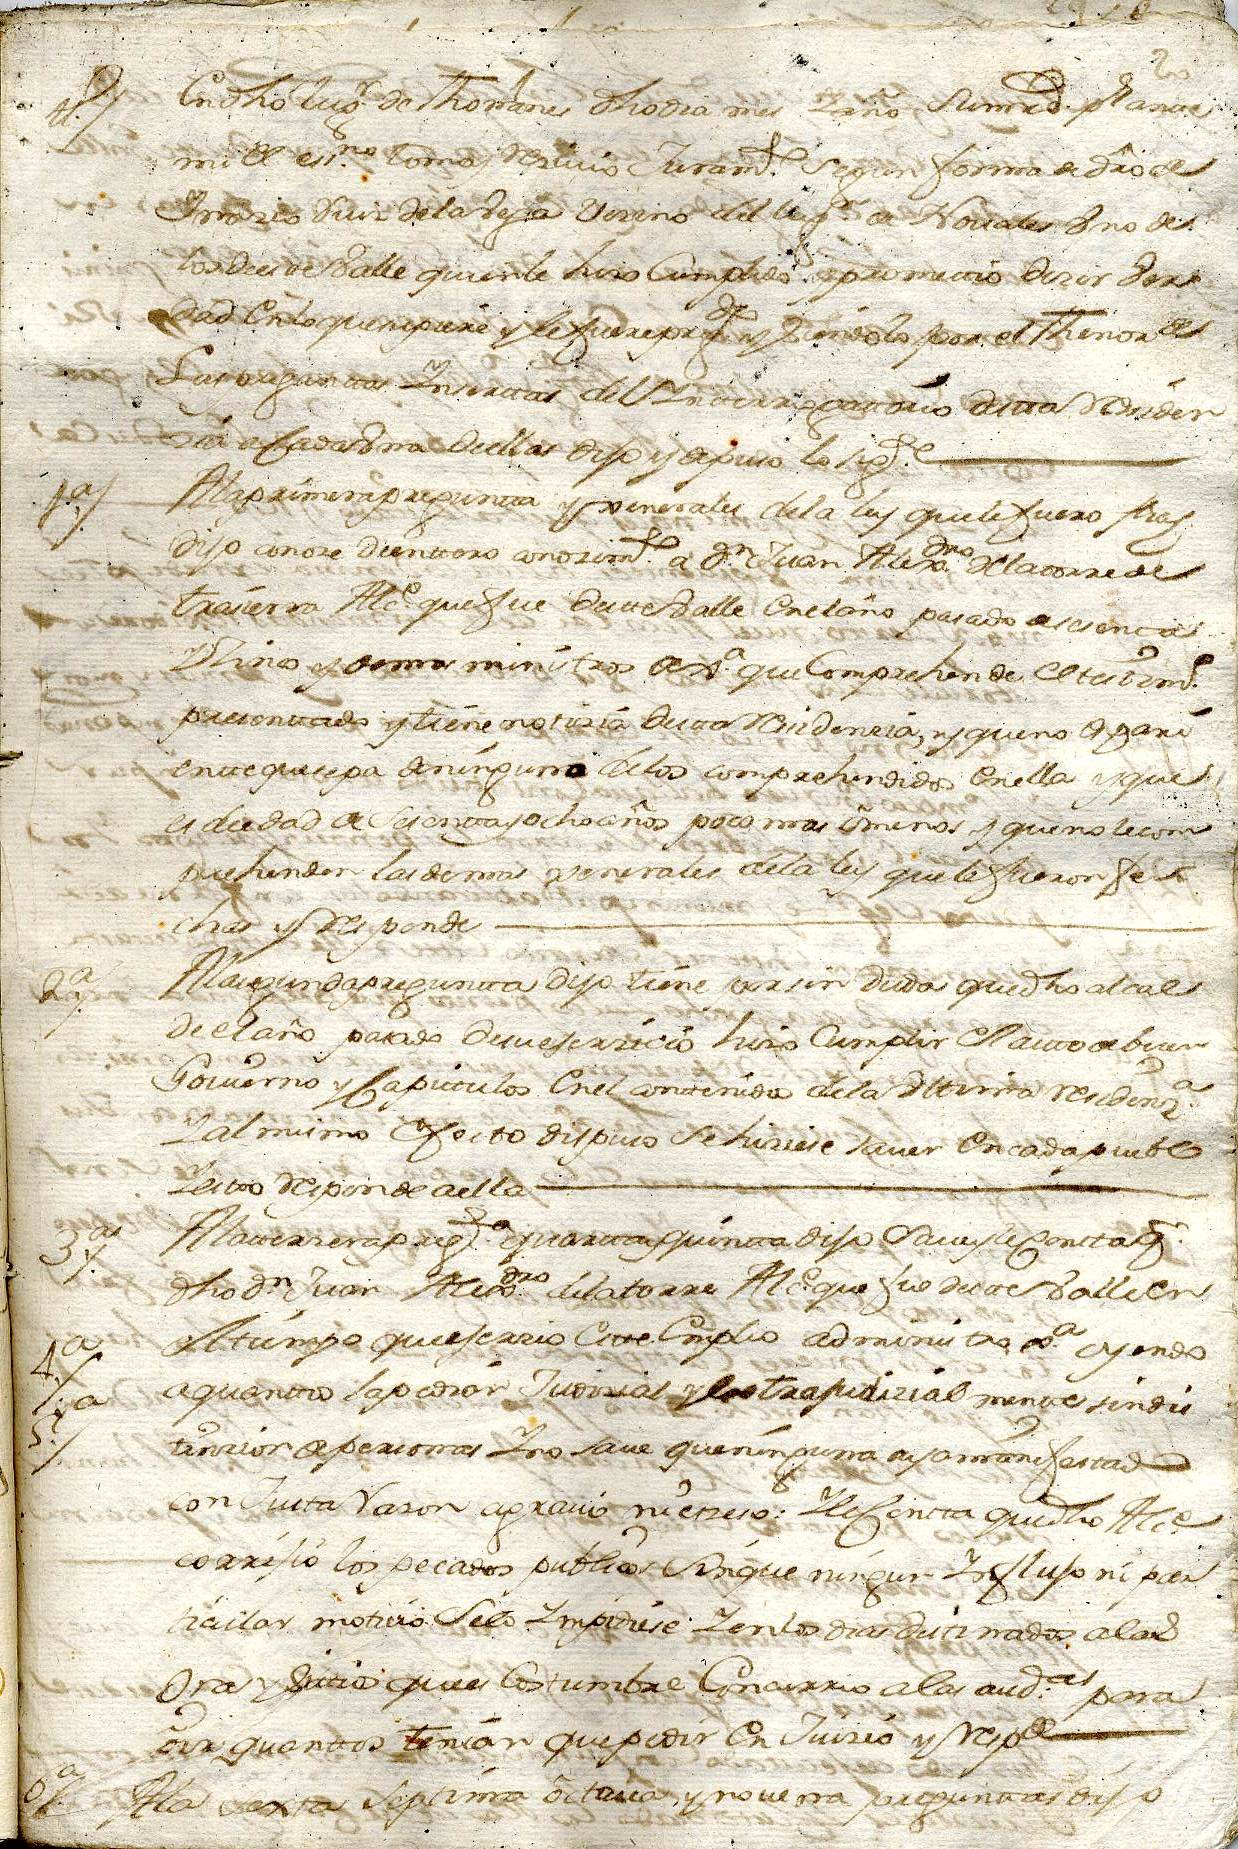 tt.º
En dho lugr. de Thoranes dho dia mes y año Su mrd. pr. ante
mi el essno. tomo y reciuio Juramto. segun forma de dro. de
Ignazio Ruiz de la Vega Vezino del lugr. de Nouales Vno de
los de este Valle quien le hizo Cumplido y prometio dezir Ver
dad En lo que supiere y le fuere pregdo. y siendolo por el Thenor de
Las preguntas Insertas del Interrogatorio de esta Residen
cia a Cada Vna de ellas dijo y depuso lo sigte.
1.ª
A la primera pregunta y Generales de la ley que le fueron fhas
dijo conoze de enttero conozimto. a Dn. Juan Alexdro. de la torre de
trasierra Alce. que fue de este Valle en el año pasado de sesenta
y Zinco y demas ministros de xª. que Comprehende el testimº.
presenttado y tiene notizia de esta Residenzia, y que no es pari
ente que sepa de ninguno de los comprehendidos En ella y que
es de edad de Sesentta y ocho años poco mas ô menos y que no le com
prehenden las demas Generales de la ley que le fueron fe
chas y responde
2.ª
A la segunda pregunta dijo tiene por sin duda que dho alcal
de el año pasado de su exerzicio hizo Cumplir El auto de buen
Gouierno y Capitulos En el contenidos de la Ultima residenzª.
Y al mismo efecto dispuso se hiziese sauer En cada pueblo
Y esto responde a ella
3.as
A la terzera pregta. quarta y quintta dijo Saue y le Constta q.
dho Dn. Juan Alexdro. de la torre Alce. que fue de este Valle en
4.ª
el tiempo que exerzio Este Empleo administro xª. oyendo
a quanttos la pedian Judizial y extrajudizialmente sin dis
5.ª
tinzion de personas Y no saue que ninguna aya manifestado
con Justa Razon agrauio ni exzeso: Y le Constta que dho Alce.
corrijio los pecados publicos Sin que ningun Influjo ni par
ticular motiuo Se lo Impidiese Y en los dias destinados a la
Ora y Sitio que es Costumbre Concurrio a las audas. para
oir quanttos tenian que pedir En Juizio y respde.
6.ª
A la sexta septima octaua y nouena preguntas dijo